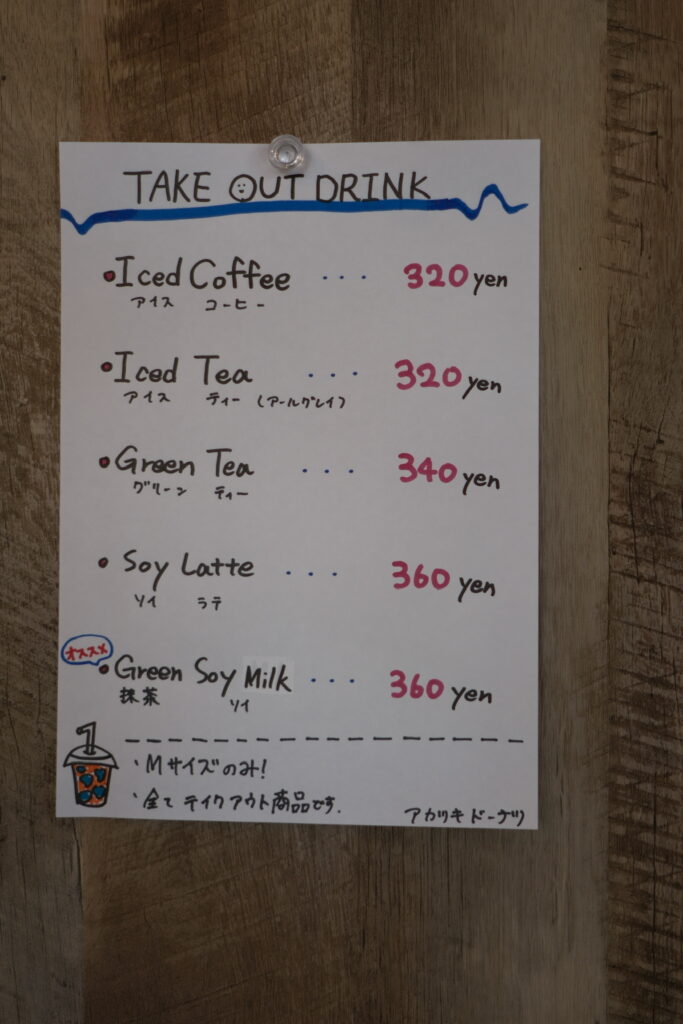 TAKE OUT DRINK
• Iced Coffee ・・・ 320 yen
アイス コーヒー
• Iced Tea ・・・ 320 yen
アイス ティー (アールグレイ)
• Green Tea ・・・ 340 yen
グリーン ティー
• Soy Latte ・・・ 360 yen
ソイ ラテ
オススメ
• Green Soy Milk ・・・ 360 yen
抹茶 ソイ
・Mサイズのみ!
・全て テイクアウト商品です.
アカツキ ドーナツ